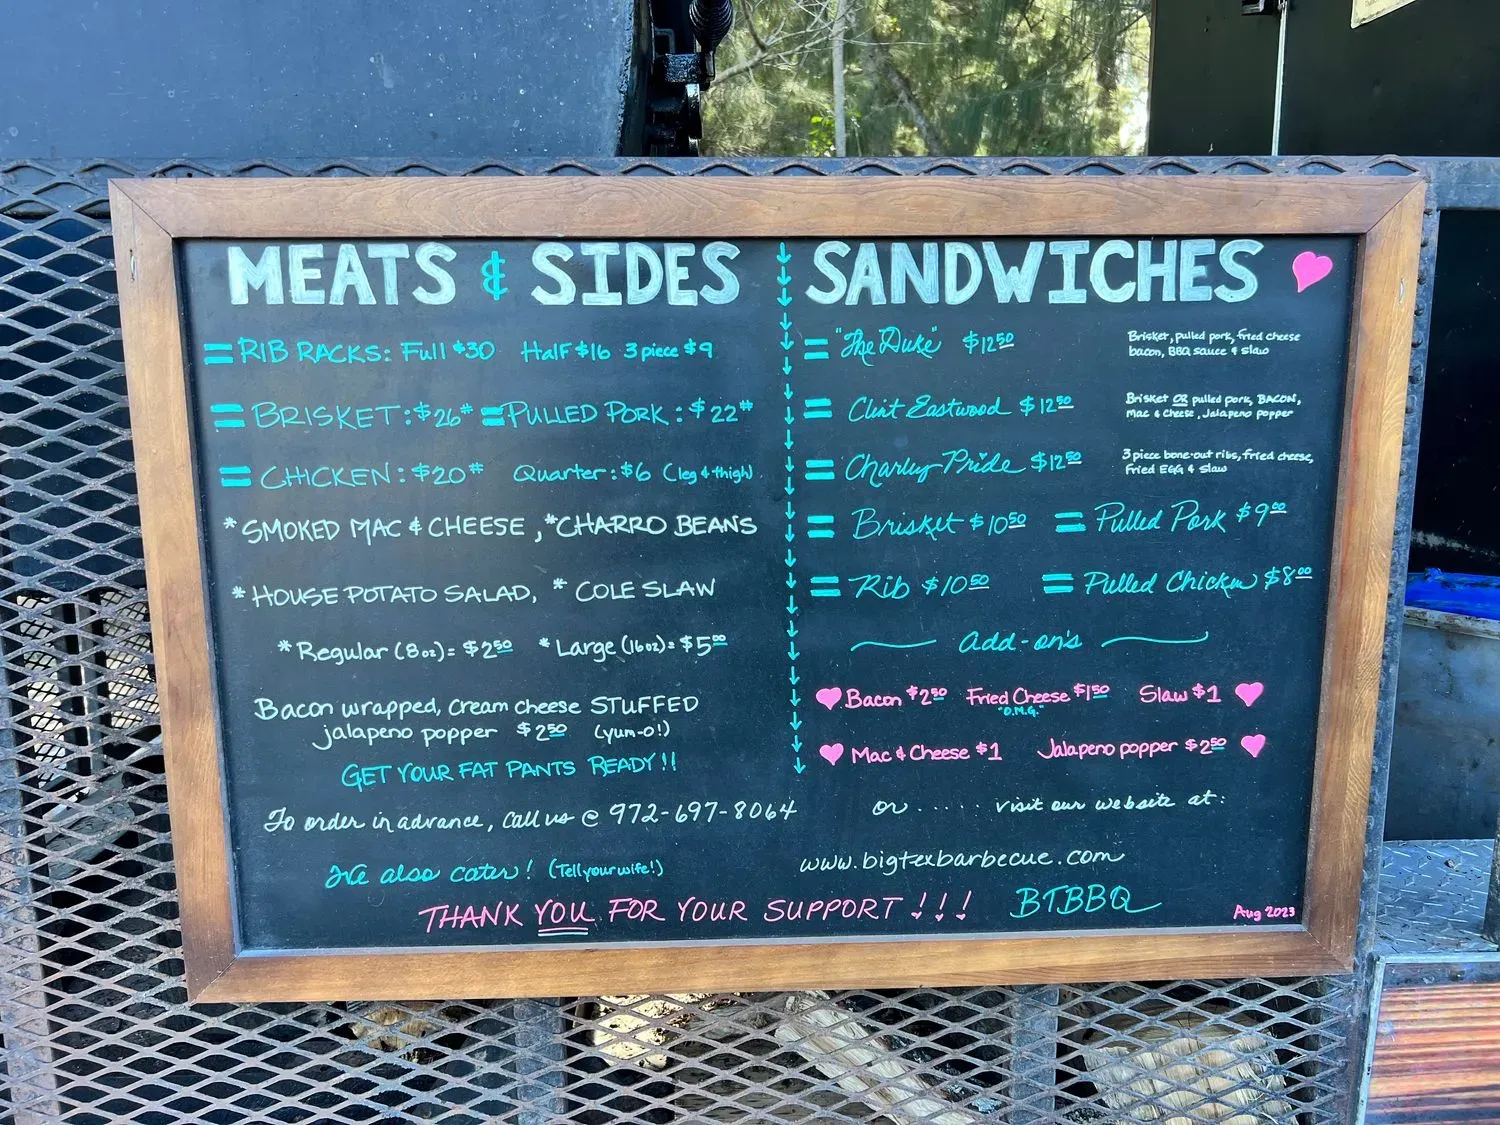 MEATS & SIDES
= RIB RACKS: Full $30 Half $16 3 piece $9
= BRISKET: $26# = PULLED PORK: $22#
= CHICKEN: $20# Quarter: $6 (leg & thigh)
* SMOKED MAC & CHEESE, * CHARRO BEANS
* HOUSE POTATO SALAD, * COLE SLAW
* Regular (8oz) = $2.50 * Large (16oz) = $5.00
Bacon wrapped, cream cheese STUFFED
jalapeno popper $2.50 (yum-o!)
GET YOUR FAT PANTS READY!!
SANDWICHES
= "The Duke" $12.50
Brisket, pulled pork, fried cheese
bacon, BBQ sauce & slaw
= Clint Eastwood $12.50
Brisket OR pulled pork, BACON,
Mac & Cheese, Jalapeno popper
= Charley Pride $12.50
3 piece bone-out ribs, fried cheese,
Fried EGG & slaw
= Brisket $10.50 = Pulled Pork $9.00
= Rib $10.50 = Pulled Chicken $8.00
Add-on's
Bacon $2.50 Fried Cheese $1.50 Slaw $1
"O.M.G."
Mac & Cheese $1 Jalapeno popper $2.50
To order in advance, call us @ 972-697-8064 or ..... visit our website at:
We also cater! (Tell your wife!) www.bigtexbarbecue.com
THANK YOU FOR YOUR SUPPORT!!! BTBBQ
Aug 2023